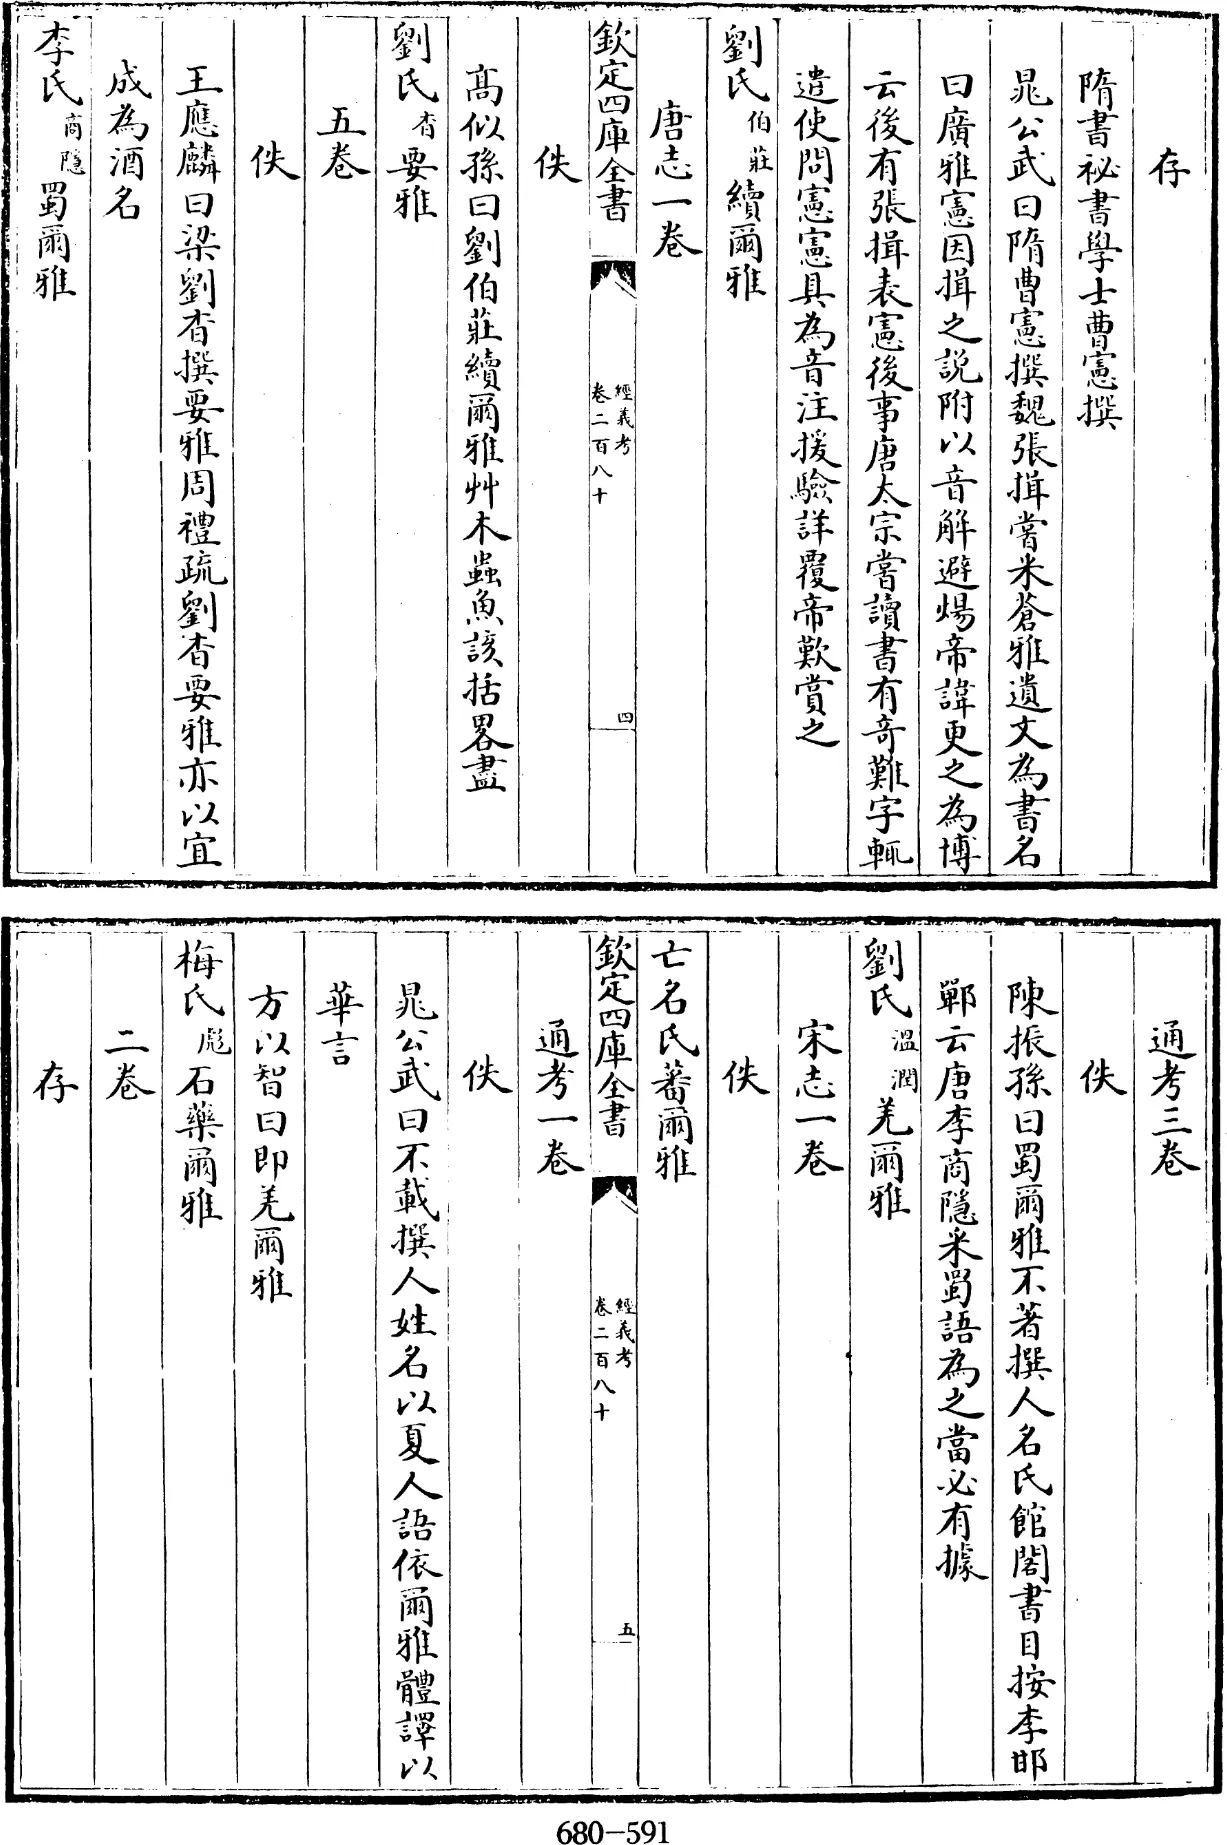 存
隋書祕書學士曹憲撰
晁公武曰隋曹憲撰魏張揖嘗米蒼雅遺文為書名
曰廣雅憲因揖之說附以音解避煬帝諱更之為博
云後有張揖表憲後事唐太宗嘗讀書有奇難字輒
遣使問憲憲具為音注援驗詳覆帝歎賞之
劉氏伯莊續爾雅
唐志一卷
欽定四庫全書
經義考
卷二百八十
四
佚
髙似孫曰劉伯莊續爾雅艸木蟲魚該括畧盡
劉氏杳要雅
五卷
佚
王應麟曰梁劉杳撰要雅周禮疏劉杳要雅亦以宜
成為酒名
李氏商隱蜀爾雅
通考三卷
佚
陳振孫曰蜀爾雅不著撰人名氏館閣書目按李邯
鄲云唐李商隱采蜀語為之當必有據
劉氏溫潤羌爾雅
宋志一卷
佚
亡名氏蕃爾雅
欽定四庫全書
經義考
卷二百八十
五
通考一卷
佚
晁公武曰不載撰人姓名以夏人語依爾雅體譯以
華言
方以智曰即羌爾雅
梅氏彪石藥爾雅
二卷
存
680-591